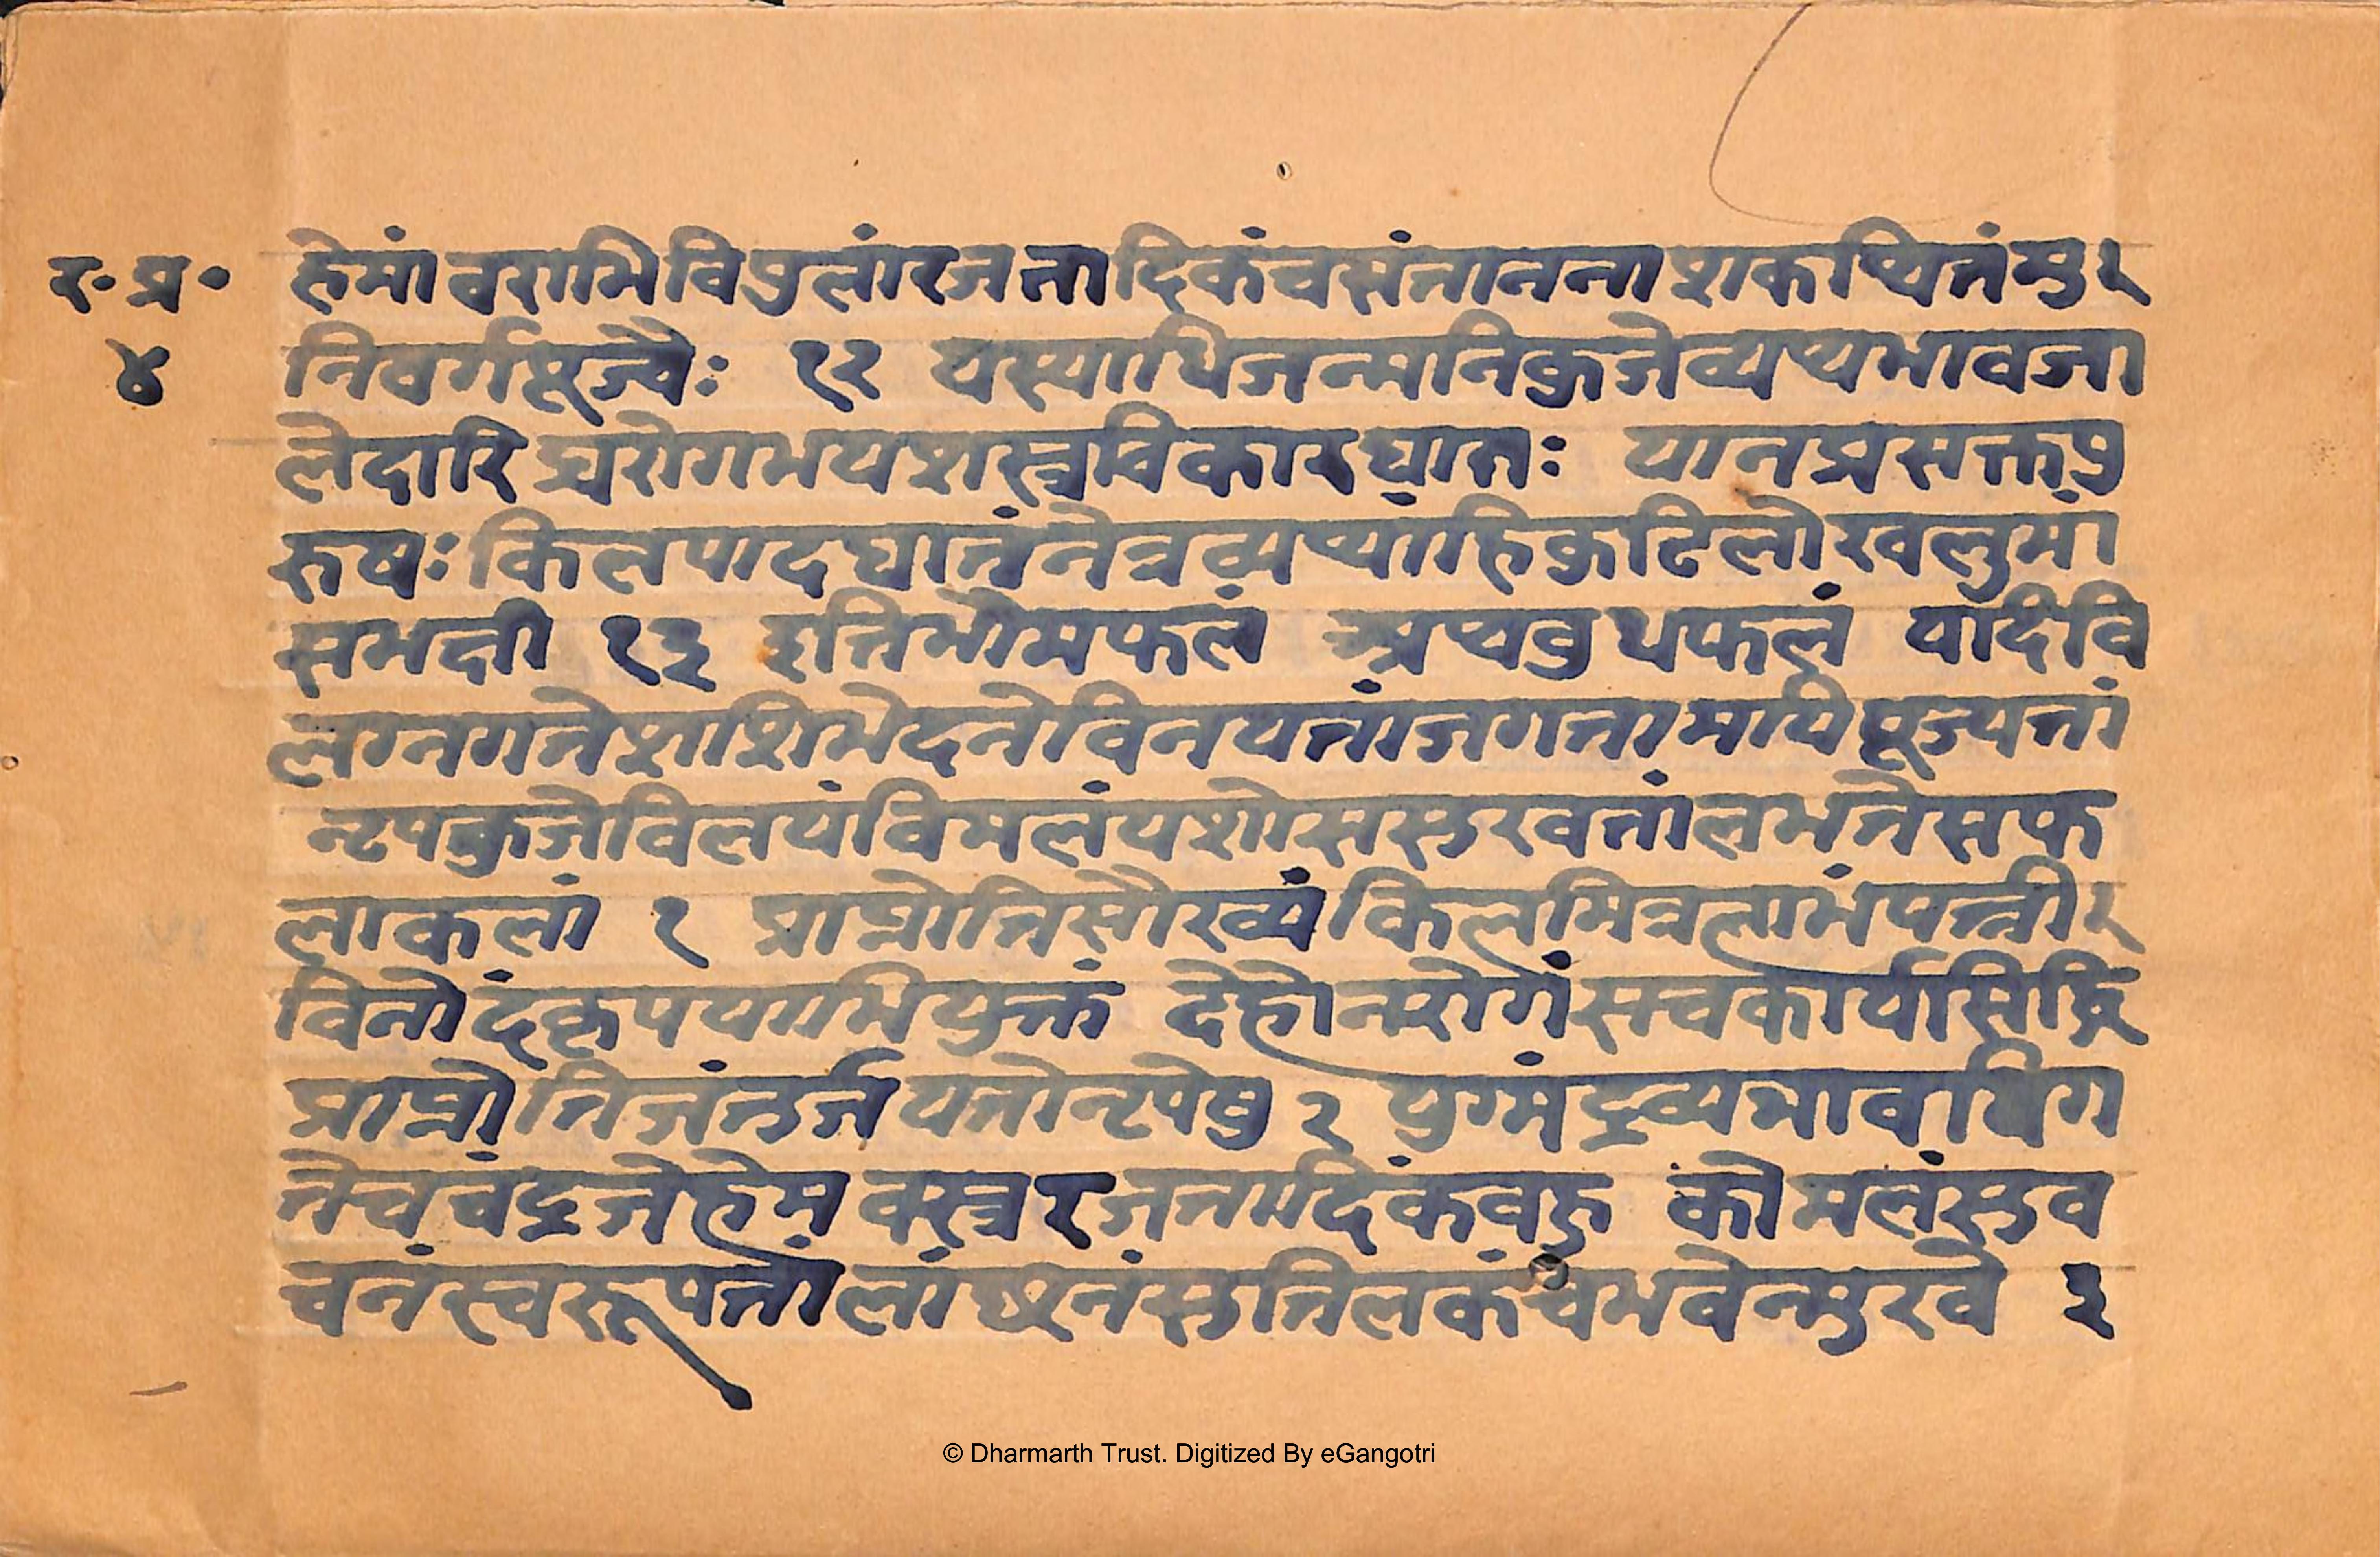 र॰ प्र॰
४
हेमांवराभिविपुलांरजतादिकंचसंतानतनाशकथितंमु
निवर्गपूज्यैः १२ यस्याधिजन्मनिकुजेव्ययभावजा
लेदारिद्र्यरोगभयशस्त्रविकारघातः यानप्रसक्तपु
रुषःकिलपादघातंनेत्रव्यथांहिकुटिलोखलुमां
समक्षी १३ इतिभौमफलं अथबुधफलं यदिवि
लग्नगतेशशिभेदनेविनयतांजगतामपिपूज्यतां
नृपकुजेविलयंविमलंयशोससुखतांलभतेसफ
लाकलां १ प्राप्नोतिसौख्यंकिलमित्रलाभंपत्नी
विनोदंकृपयाभियुक्तं देहोनरोगंसचकार्यसिद्धिं
प्राप्नोतिजंतुर्जयतोनृपेषु २ युग्मंद्रव्यभावाधिग
तेचचंद्रजेहेमवस्त्ररजतादिकंबहु कोमलंसुव
चनंस्वरूपतांलांछनंसुतिलकंचभवेन्मुखे ३
© Dharmarth Trust. Digitized By eGangotri